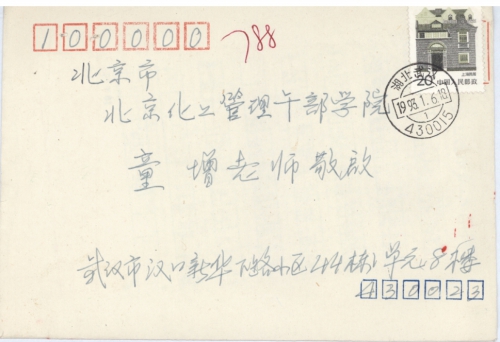 100000 788
北京市
北京化工管理干部学院
童增老师敬啟
武汉市汉口新华下路小区44栋1单元8楼
430023
20
中国人民邮政
湖北武汉
1993.1.6.18
1
430015